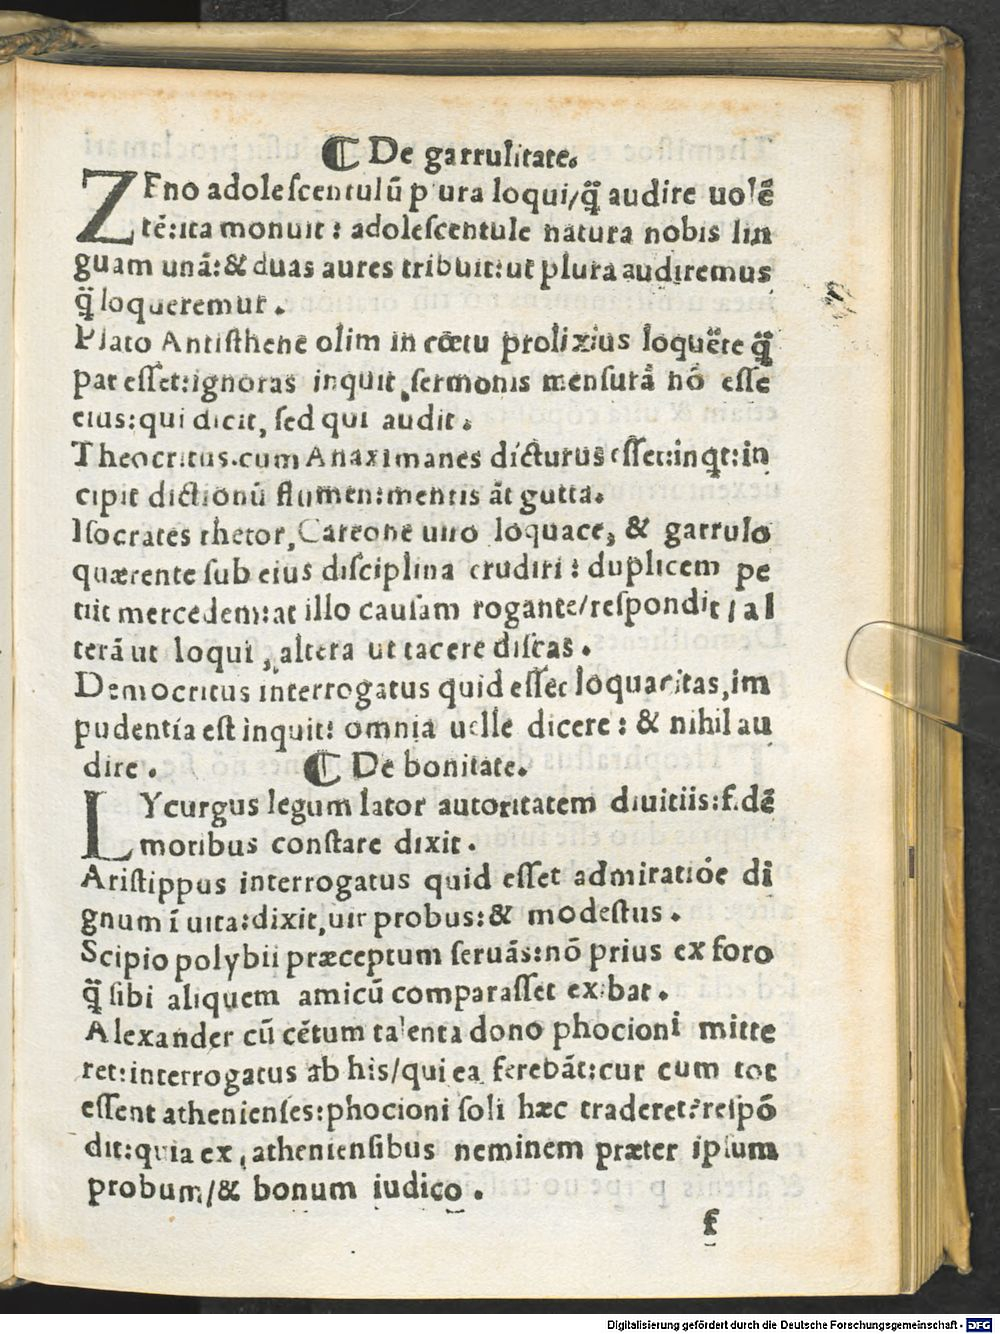 ☾ De garrulitate.
ZEno adolescentulũ p ura loqui/q̃ audire uolẽ
tẽ:ita monuit: adolescentule natura nobis lin
guam unã:& duas aures tribuit:ut plura audiremus
q̃ loqueremur.
Plato Antisthenẽ olim in cœtu prolixius loquẽte q̃
par esset:ignoras inquit, sermonis mensurã nõ esse
eius:qui dicit, sed qui audit.
Theocritus.cum Anaximanes dicturus esset:inqt:in
cipit dictionũ flumen:mentis ãt gutta.
Isocrates rhetor, Careone uiro loquace, & garrulo
quærente sub eius disciplina erudiri: duplicem pe
tiit mercedem:at illo causam rogante/respondit/al
terã ut loqui, altera ut tacere discas.
Democritus interrogatus quid esset loquacitas,im
pudentia est inquit: omnia uelle dicere: & nihil au
dire. ☾ De bonitate.
LYcurgus legum lator autoritatem diuitiis:s.dẽ
moribus constare dixit.
Aristippus interrogatus quid esset admiratiõe di
gnum ĩ uita:dixit,uir probus:& modestus.
Scipio polybii præceptum seruãs:nõ prius ex foro
q̃ sibi aliquem amicũ comparasset exibat.
Alexander cũ cẽtum talenta dono phocioni mitte
ret:interrogatus ab his/qui ea ferebãt:cur cum tot
essent athenienses:phocioni soli hæc traderet?respõ
dit:quia ex, atheniensibus neminem præter ipsum
probum/& bonum iudico.
f
Digitalisierung gefördert durch die Deutsche Forschungsgemeinschaft - DFG